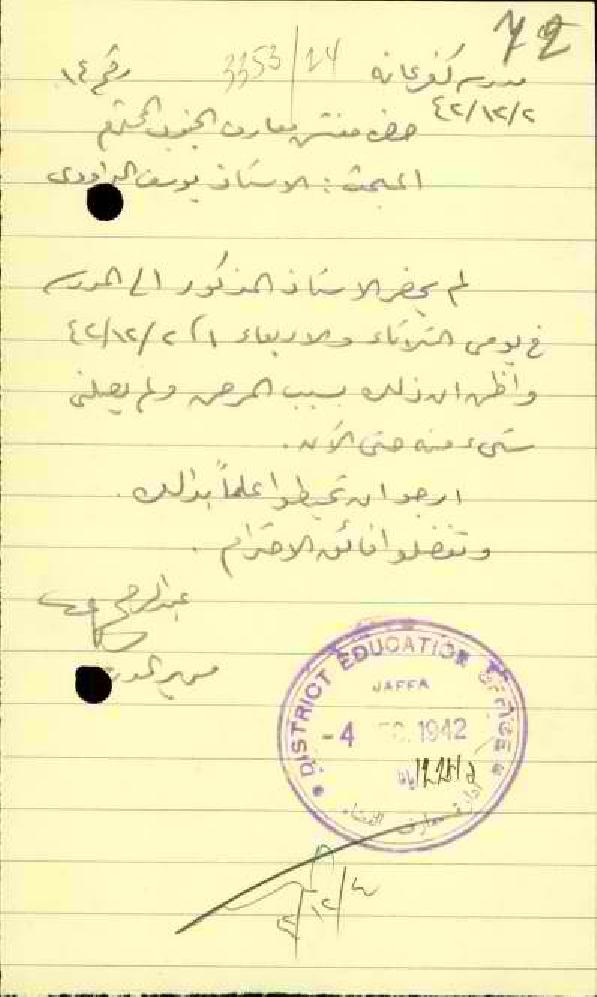 72
مدرسة كفرعانه 3353/24 رقم ١٤
٤٢/١٢/٢
حضرة مفتش معارف الجنوب المحترم
المبحث : الاستاذ يوسف
لم يحضر الاستاذ المذكور الى المدرسة
في يومي الثلاثاء والاربعاء ١ ، ٤٢/١٢/٢
واظن ان ذلك بسبب المرض ولم يصلني
شيء منه حتى الآن .
ارجو ان تحيطوا علماً بذلك .
وتفضلوا فائق الاحترام .
عبد الرحمن
مدير المدرسة
DISTRICT EDUCATION OFFICE
JAFFA
-4 1942
ادارة معارف القضاء
٤/١٢/٤٢